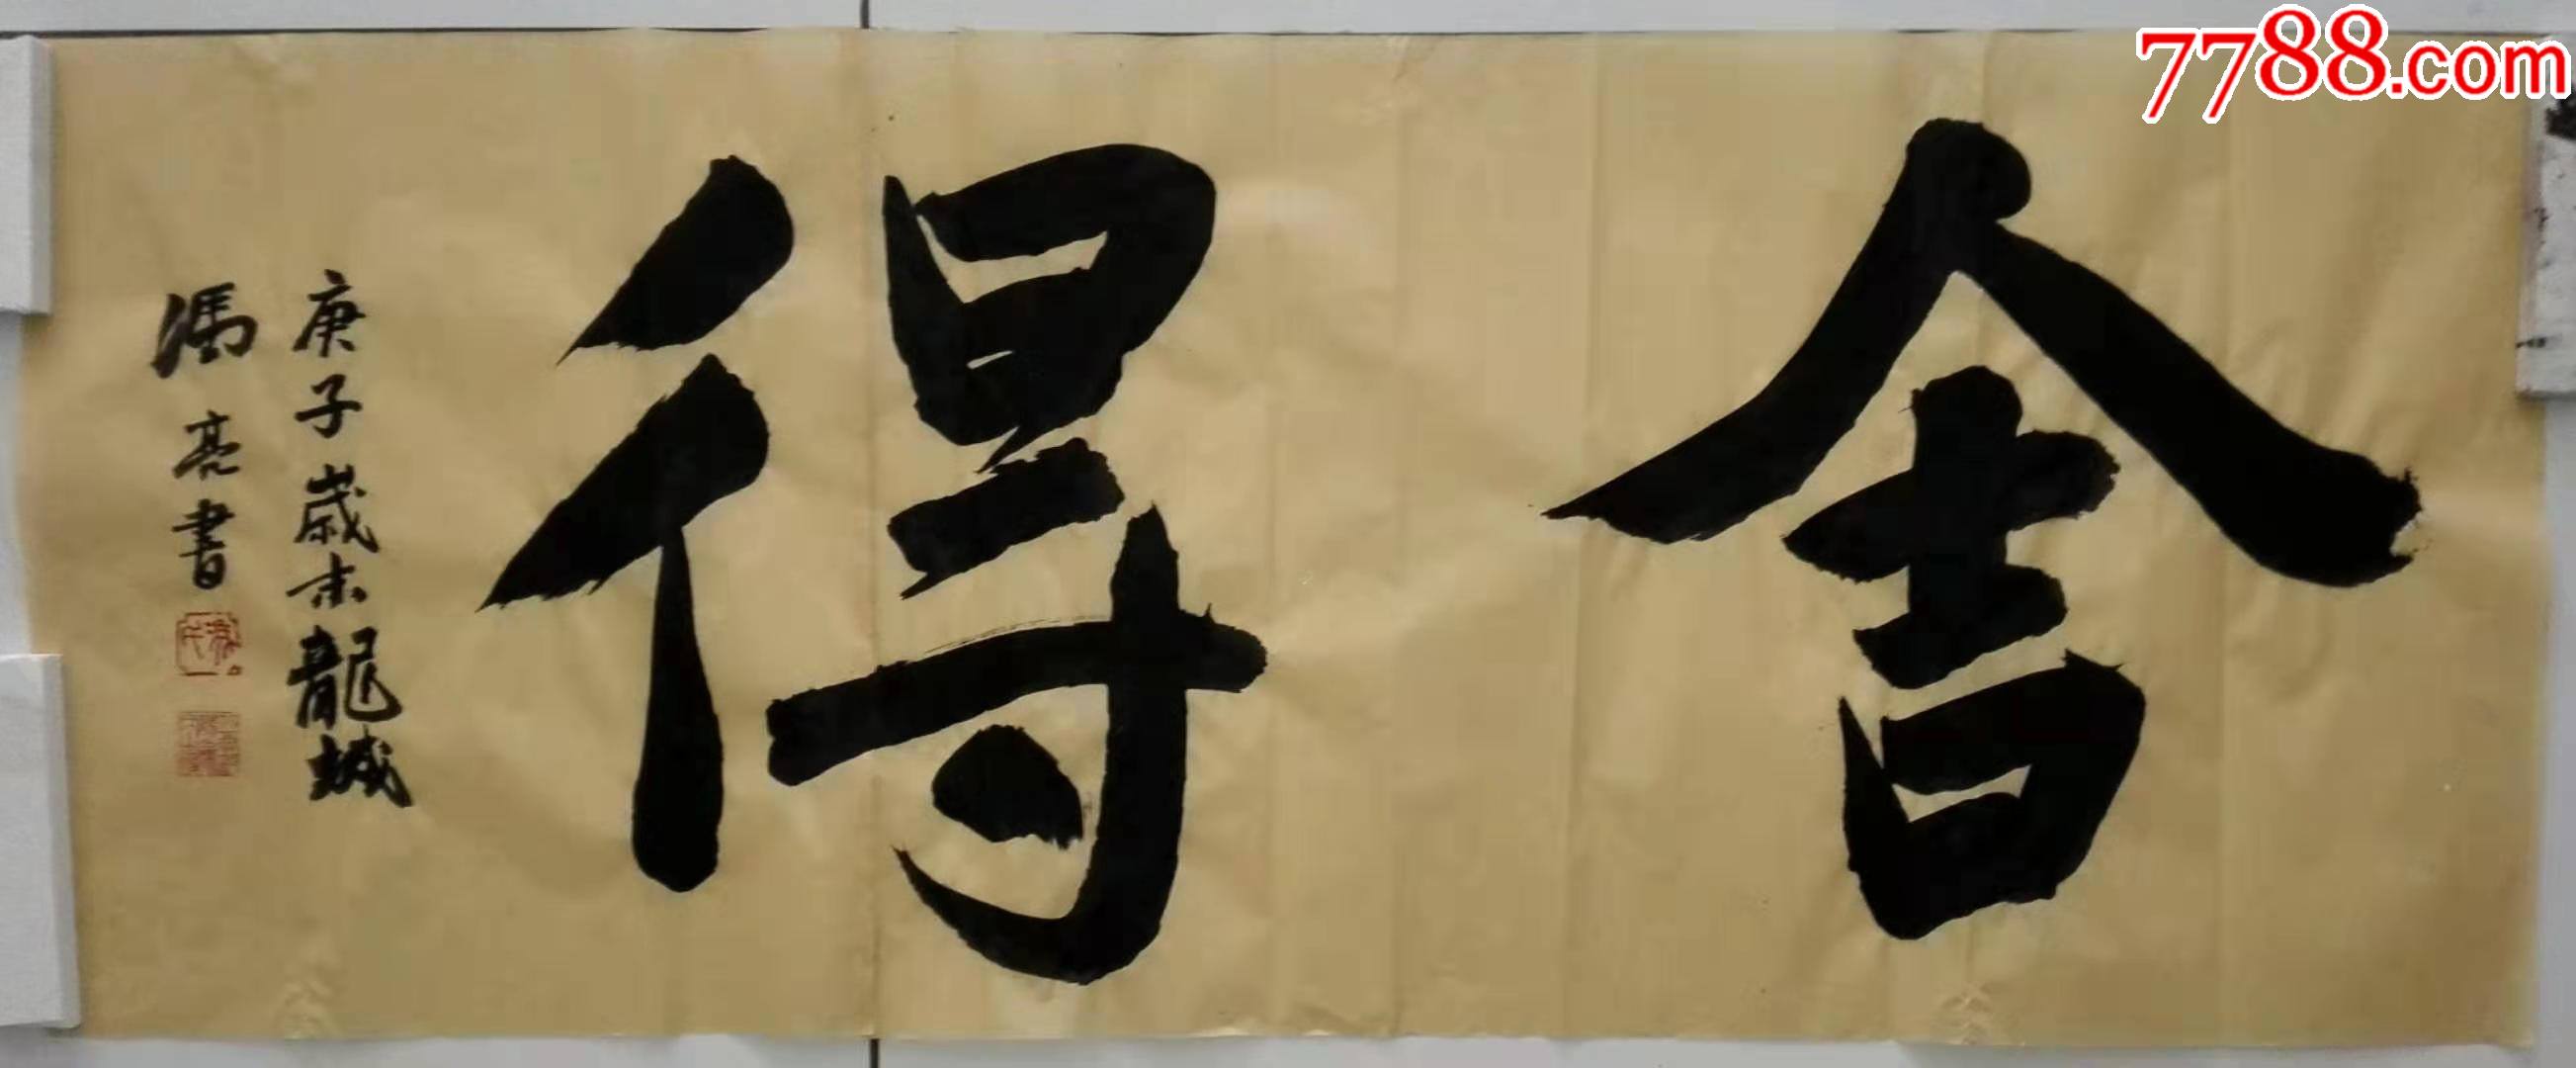 舍得
庚子歲末龍城
馮亮書
7788.com